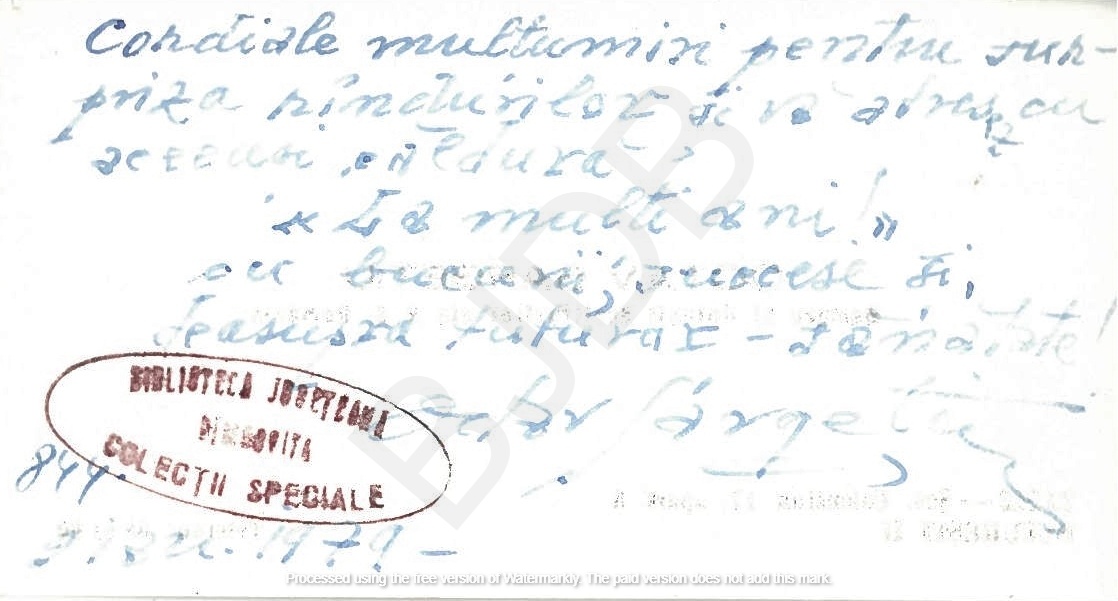 Cordiale multumiri pentru sur-
priza rîndurilor si vă adresez cu
aceeasi căldură :
« La multi ani! »
cu bucurii, succese si,
deasupra tuturor - sănătate!
BIBLIOTECA JUDEȚEANA
DIMBOVITA
COLECȚII SPECIALE
844.
1979 -
BJDB
Processed using the free version of Watermarkly. The paid version does not add this mark.